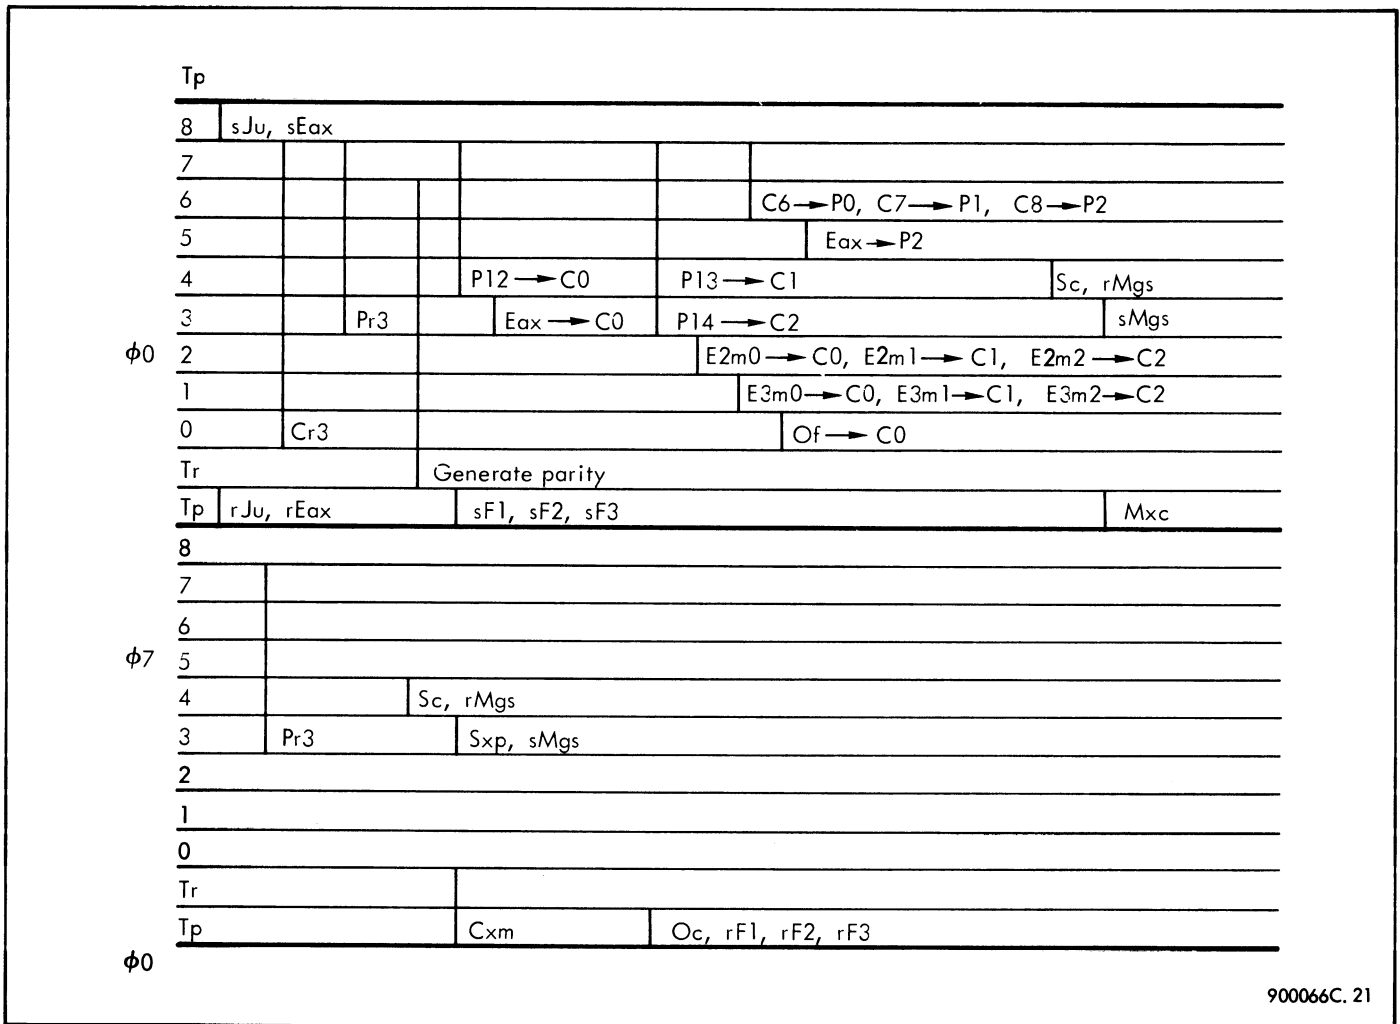 Tp
8 sJu, sEax
7
6 C6→P0, C7→P1, C8→P2
5 Eax→P2
4 P12→C0 P13→C1 Sc, rMgs
3 Pr3 Eax→C0 P14→C2 sMgs
ϕ0 2 E2m0→C0, E2m1→C1, E2m2→C2
1 E3m0→C0, E3m1→C1, E3m2→C2
0 Cr3 Of→C0
Tr Generate parity
Tp rJu, rEax sF1, sF2, sF3 Mxc
8
7
6
ϕ7 5
4 Sc, rMgs
3 Pr3 Sxp, sMgs
2
1
0
Tr
Tp Cxm Oc, rF1, rF2, rF3
ϕ0
900066C. 21